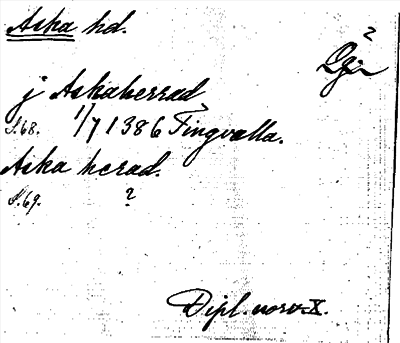 Aska hd.
?
Ög
j Askaherrad
S.68. 1/7 1386 Tingvalla.
Aska herad.
S.69. ?
Dipl. norv. X.